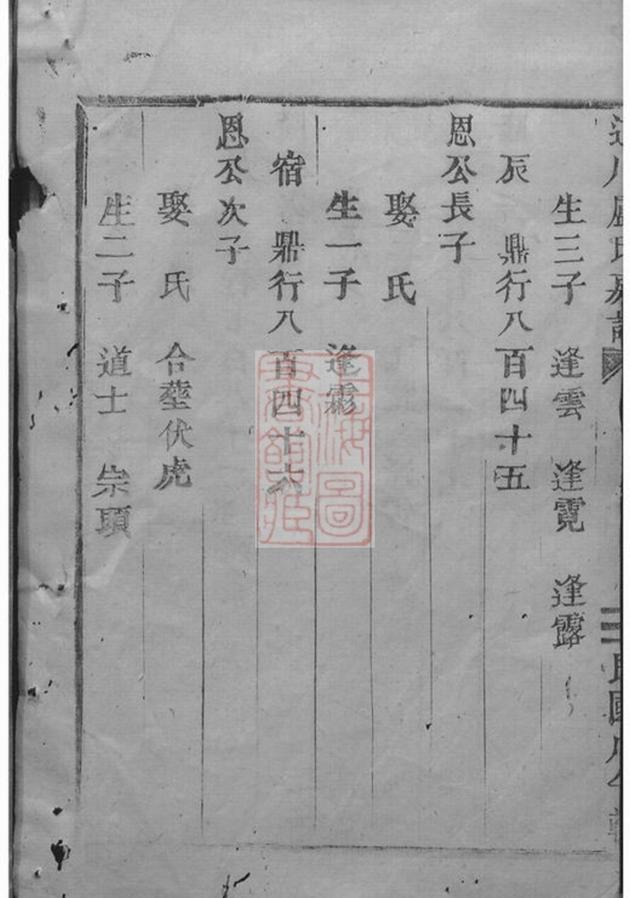 生三子 逢雲 逢霓 逢露
辰 鼎行八百四十五
恩公長子
娶 氏
生一子 逢
宿 鼎行八百四十六
恩公次子
娶 氏 合塟伏虎
生二子 道士 崇頊
上海圖書館藏